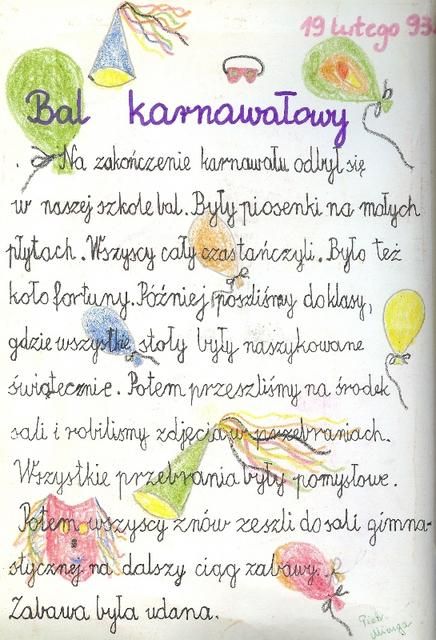 19 lutego 93r.
Bal karnawałowy
Na zakończenie karnawału odbył się
w naszej szkole bal. Były piosenki na małych
płytach. Wszyscy cały czas tańczyli. Było też
koło fortuny. Później poszliśmy do klasy,
gdzie wszystkie stoły były naszykowane
świątecznie. Potem przeszliśmy na środek
sali i robiliśmy zdjęcia w przebraniach.
Wszystkie przebrania były pomysłowe.
Potem wszyscy znów zeszli do sali gimna-
stycznej na dalszy ciąg zabawy.
Zabawa była udana.
Piotr